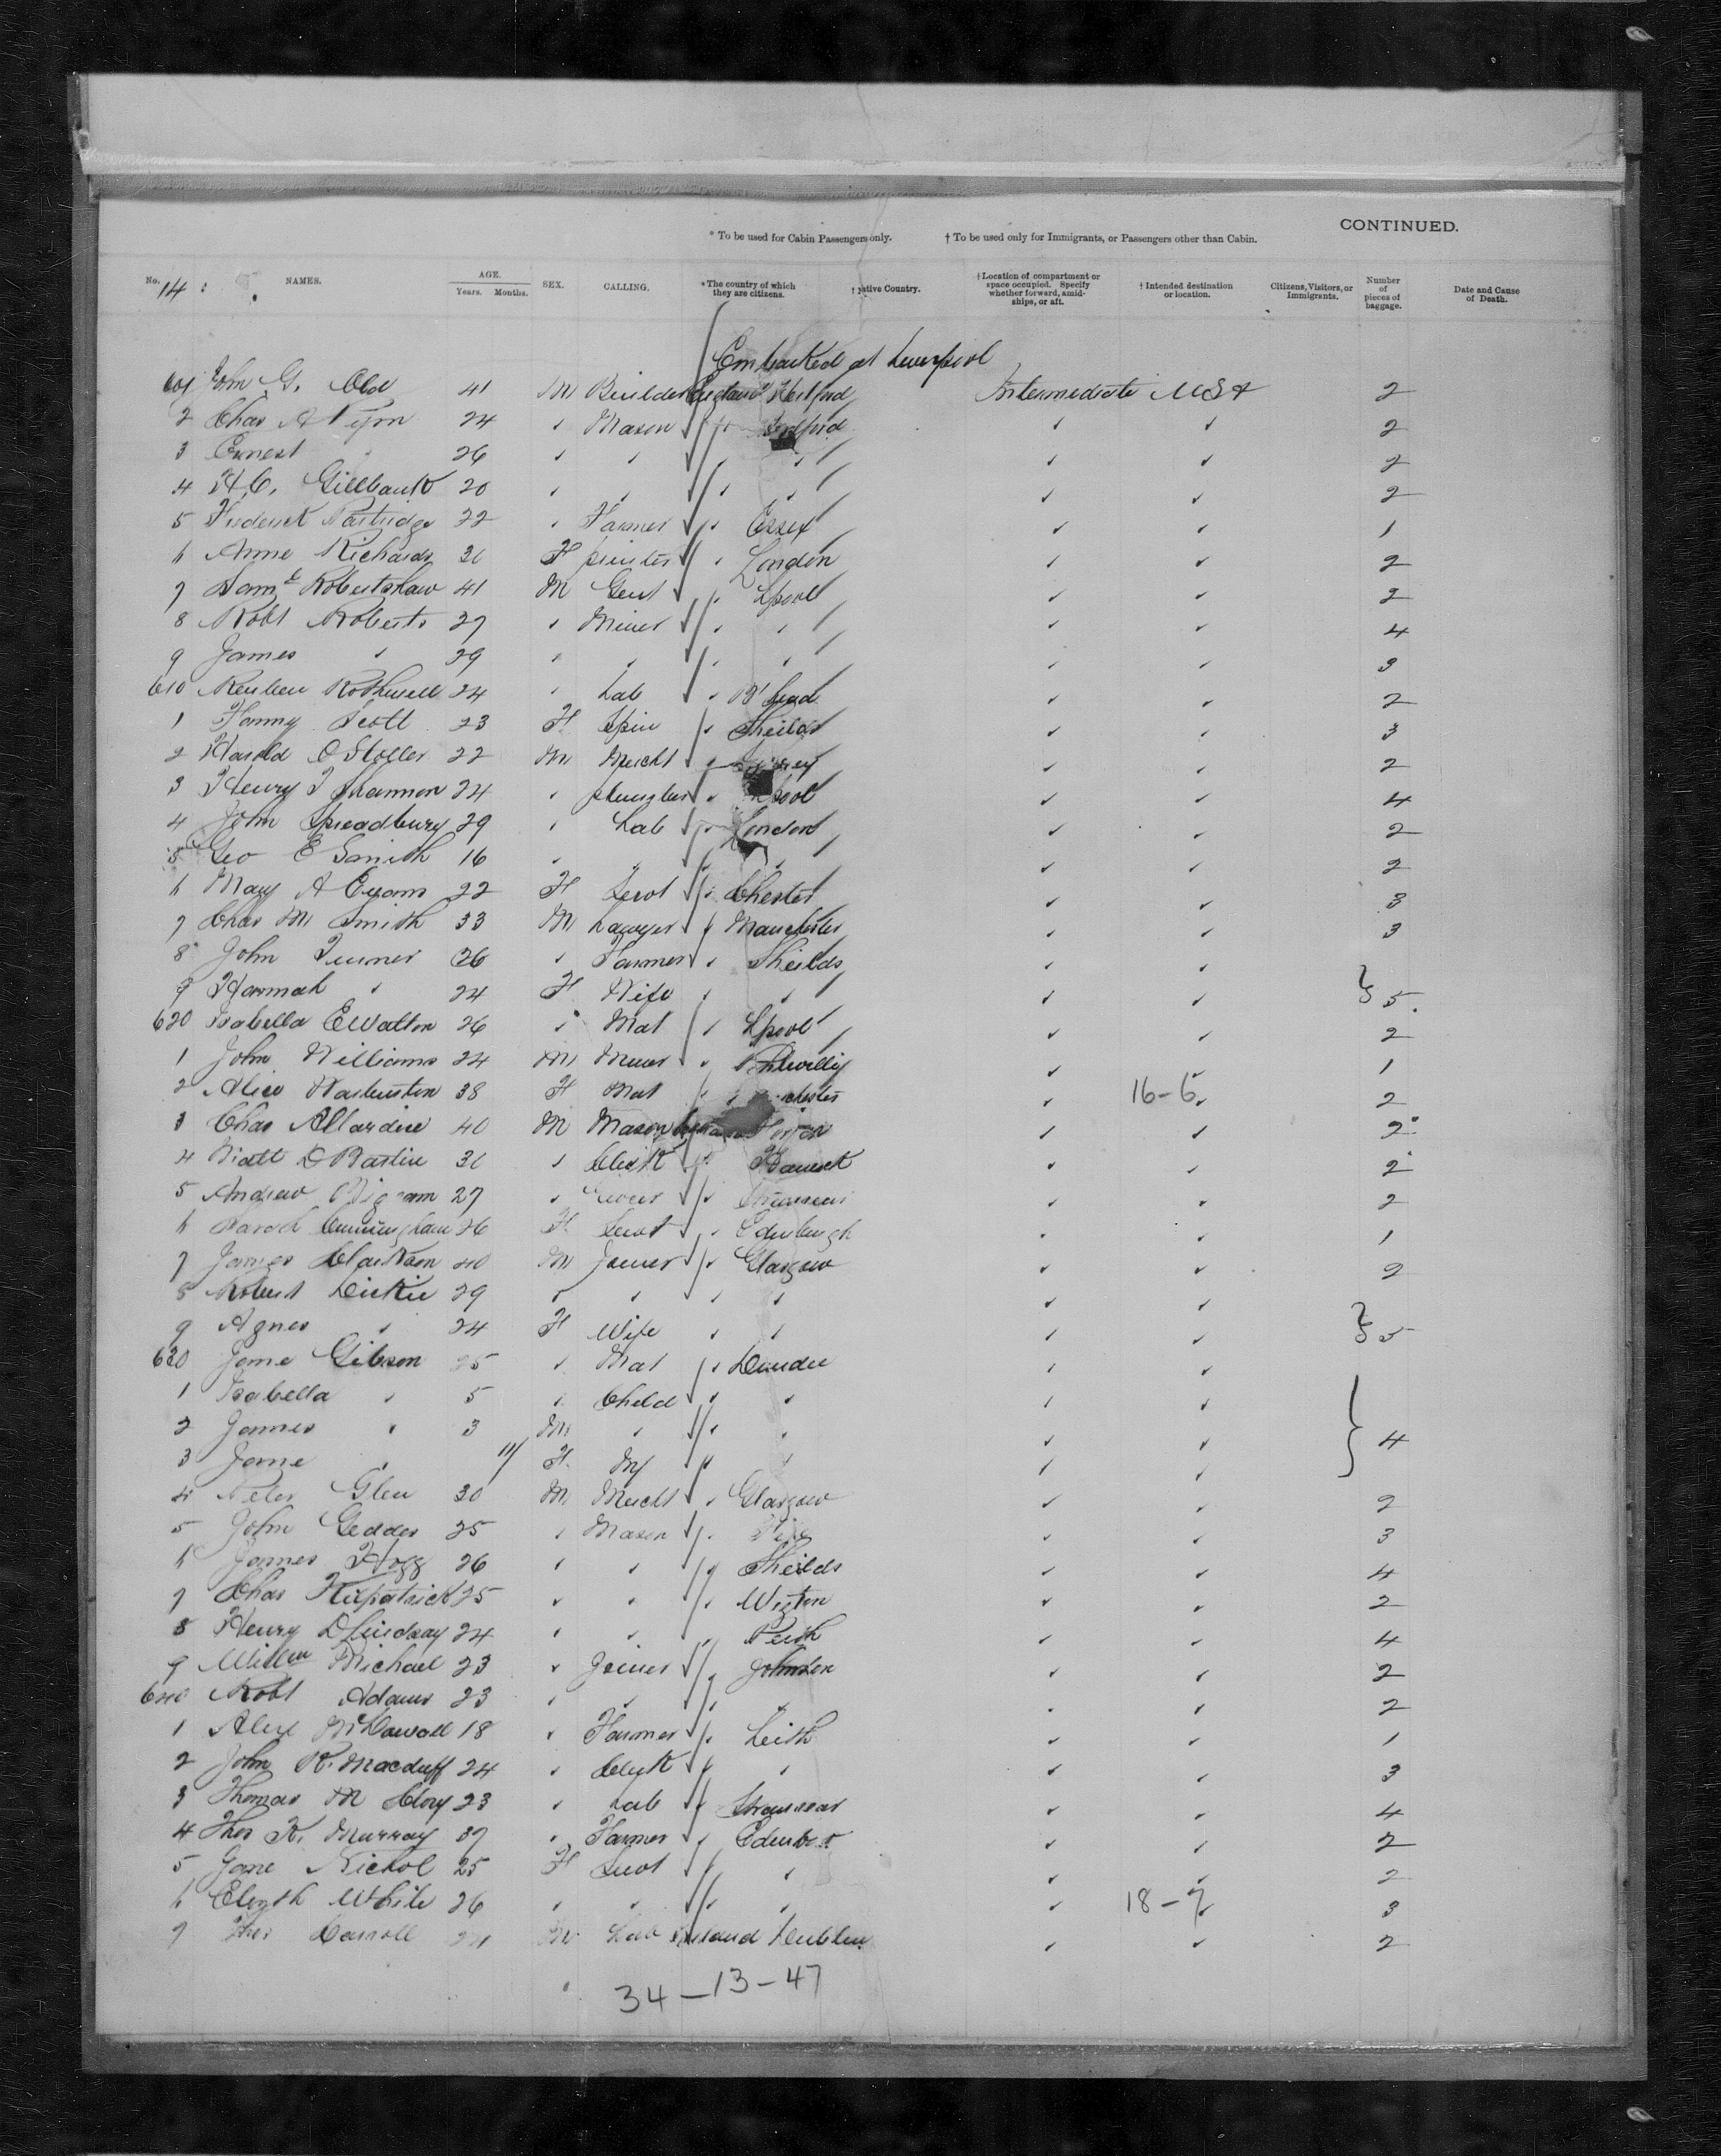 CONTINUED.
* To be used for Cabin Passengers only. † To be used only for Immigrants, or Passengers other than Cabin.
No. 14 : NAMES. AGE. Years. Months. SEX. CALLING. *The country of which they are citizens. † Native Country. †Location of compartment or space occupied. Specify whether forward, amidships, or aft. † Intended destination or location. Citizens, Visitors, or Immigrants. Number of pieces of baggage. Date and Cause of Death.
Embarked at Liverpool
601 John G. Old 41 M Builder England Hertford Intermediate USA 2
2 Chas A 24 " Mason " Bedford " " 2
3 Ernest " 26 " " " " " " 2
4 H C. Gillbank 20 " " " " " " 2
5 Frederick Partridge 22 " Farmer " Essex " " 1
6 Anne Richards 31 F " London " " 2
7 Saml Robertshaw 41 M Gent " Lpool " " 2
8 Robt Roberts 27 " Miner " " " " 4
9 James " 29 " " " " " " 3
610 Reuben Rothwell 24 " Lab " B'head " " 2
1 Fanny Scott 23 F Spin " Sheilds " " 3
2 Harold O Stoller 22 M Mercht " " " 2
3 Henry T Shannon 24 " plumber " Lpool " " 4
4 John Spreadbury 29 " Lab " London " " 2
5 Geo E Smith 16 " " " " " " 2
6 Mary A Evans 22 F Servt " Chester " " 3
7 Chas M Smith 33 M Lawyer " Manchester " " 3
8 John Turner 26 " Farmer " Sheilds " "
9 Hannah " 24 F Wife " " " " } 5
620 Isabella E Walton 26 " Mat " Lpool " " 2
1 John Williams 24 M Miner " " " 1
2 Alice Warburton 38 F Mat " " 16-6 " 2
3 Chas Allardice 40 M Mason " " 2
4 D Bastin 31 " Clerk " " " 2
5 Andrew 27 " " " " 2
6 Sarah Cunningham 26 F Servt " Edinburgh " " 1
7 James Clarkson 40 M Joiner " Glasgow " " 2
8 Robert Dickie 29 " " " " " "
9 Agnes " 24 F Wife " " " " } 5
630 Jane Gibson 25 " Mat " Dundee " "
1 Isabella " 5 " Child " " " "
2 James " 3 M " " " " " } 4
3 Jane " 11/ F. Inf " " " "
4 Peter Glen 30 M Mercht " Glasgow " " 2
5 John Geddes 25 " Mason " Fife " " 3
6 James Hogg 26 " " " Sheilds " " 4
7 Chas Kirpatrick 25 " " " Wigton " " 2
8 Henry D Lindsay 24 " " " Perth " " 4
9 Michael 23 " Joiner " Johnston " " 2
640 Robt Adams 23 " " " " " " 2
1 Alex McDowall 18 " Farmer " Leith " " 1
2 John R. Macduff 24 " Clerk " " " " 3
3 Thomas M Clory 23 " Lab " Stranraer " " 4
4 Thos K. Murray 37 " Farmer " " " 2
5 Jane Nichol 25 F Servt " " " " 2
6 Elizth White 26 " " " " " 18-7 " 3
7 Thos Carroll M Lab Ireland Dublin " " 2
34-13-47